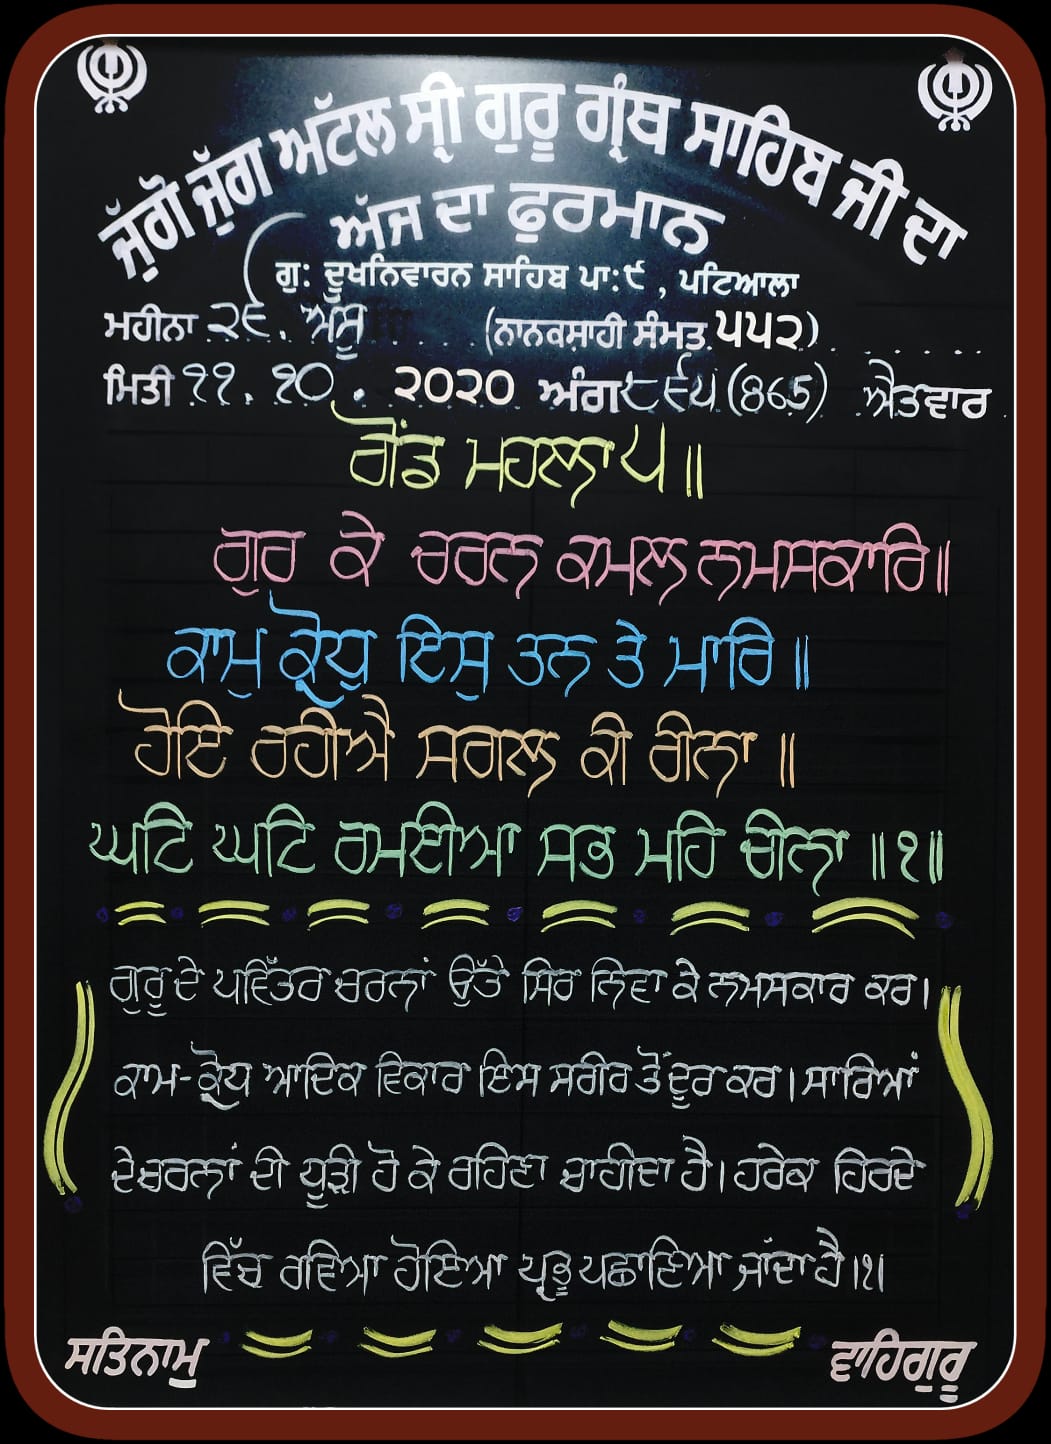 ਜੁੱਗੋ ਜੁੱਗ ਅਟੱਲ ਸ੍ਰੀ ਗੁਰੂ ਗ੍ਰੰਥ ਸਾਹਿਬ ਜੀ ਦਾ
ਅੱਜ ਦਾ ਫੁਰਮਾਨ
ਗੁ: ਦੂਖਨਿਵਾਰਨ ਸਾਹਿਬ ਪਾ:੯, ਪਟਿਆਲਾ
ਮਹੀਨਾ ੨੬. ਅੱਸੂ (ਨਾਨਕਸ਼ਾਹੀ ਸੰਮਤ ੫੫੨)
ਮਿਤੀ ੧੧.੧੦.੨੦੨੦ ਅੰਗ ੮੬੫ (865) ਐਤਵਾਰ
ਗੋਂਡ ਮਹਲਾ ੫ ॥
ਗੁਰ ਕੇ ਚਰਨ ਕਮਲ ਨਮਸਕਾਰਿ॥
ਕਾਮੁ ਕ੍ਰੋਧੁ ਇਸੁ ਤਨ ਤੇ ਮਾਰਿ ॥
ਹੋਇ ਰਹੀਐ ਸਗਲ ਕੀ ਰੀਨਾ ॥
ਘਟਿ ਘਟਿ ਰਮਈਆ ਸਭ ਮਹਿ ਚੀਨਾ ॥੧॥
ਗੁਰੂ ਦੇ ਪਵਿੱਤਰ ਚਰਨਾਂ ਉੱਤੇ ਸਿਰ ਨਿਵਾ ਕੇ ਨਮਸਕਾਰ ਕਰ।
ਕਾਮ-ਕ੍ਰੋਧ ਆਦਿਕ ਵਿਕਾਰ ਇਸ ਸਰੀਰ ਤੋਂ ਦੂਰ ਕਰ। ਸਾਰਿਆਂ
ਦੇ ਚਰਨਾਂ ਦੀ ਧੂੜੀ ਹੋ ਕੇ ਰਹਿਣਾ ਚਾਹੀਦਾ ਹੈ। ਹਰੇਕ ਹਿਰਦੇ
ਵਿੱਚ ਰਵਿਆ ਹੋਇਆ ਪ੍ਰਭੂ ਪਛਾਣਿਆ ਜਾਂਦਾ ਹੈ।੧।
ਸਤਿਨਾਮੁ ਵਾਹਿਗੁਰੂ